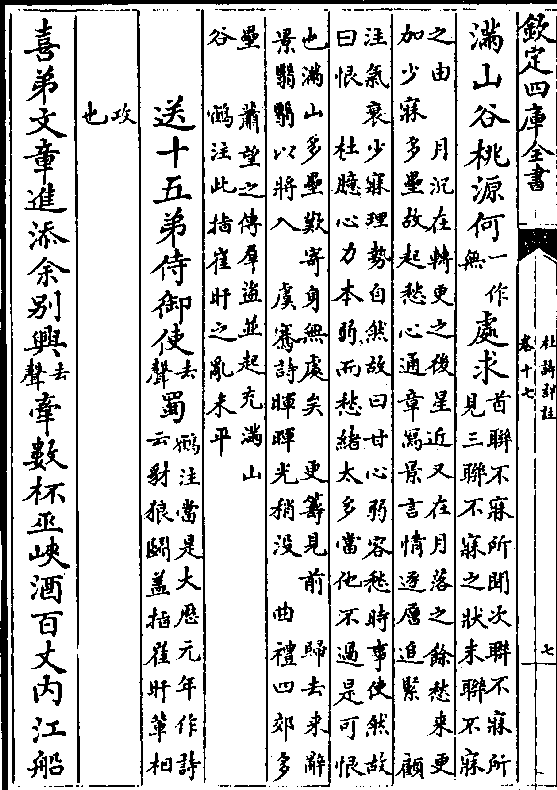 欽定四庫全書
杜詩詳註
卷十七
七
滿山谷桃源何一作無處求首聯不寐所聞次聯不寐所見三聯不寐之狀末聯不寐
之由 月沉在轉更之後星近又在月落之餘愁來更
加少寐多壘故起愁心通章寫景言情逐層追緊 顧
注氣衰少寐理勢自然故曰甘心弱容愁時事使然故
曰恨 杜臆心力本弱而愁緒太多當他不過是可恨
也滿山多壘歎寄身無處矣 更籌見前 歸去來辭
景翳翳以將入 虞騫詩暉暉光稍沒 曲禮四郊多
壘 蕭望之傳羣盜並起充滿山
谷 鶴注此指崔旰之亂未平
送十五弟侍御使去聲蜀鶴注當是大歷元年作詩云豺狼鬬蓋指崔旰輩相
攻
也
喜弟文章進添余别興去聲牽數杯巫峽酒百丈內江船